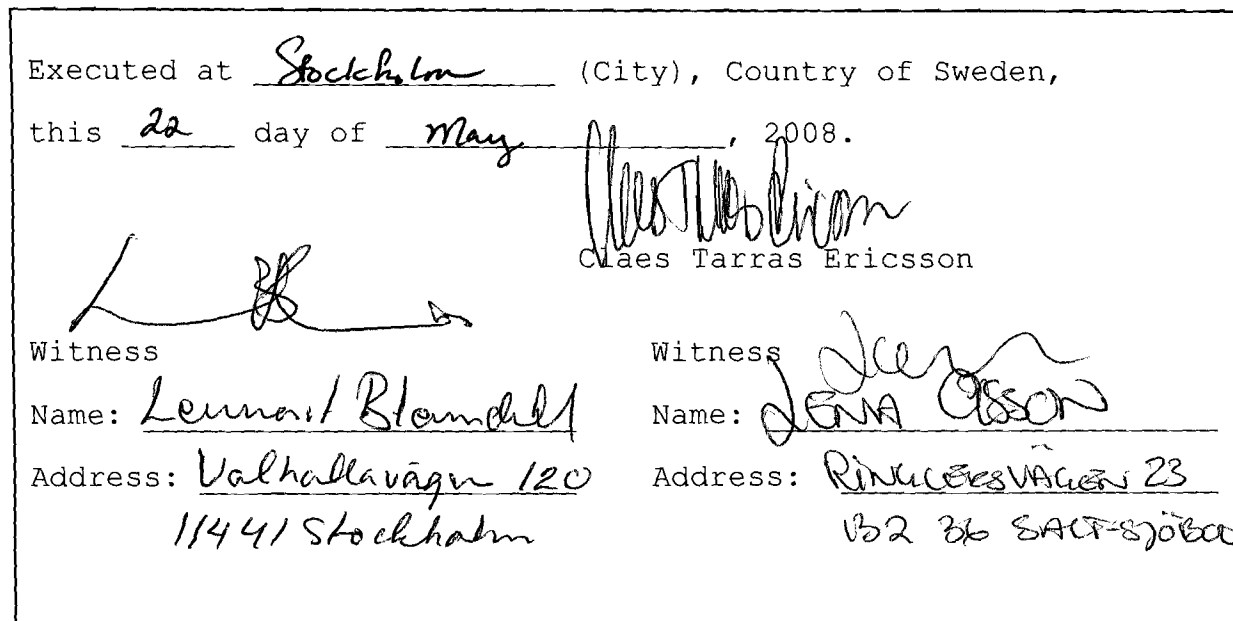 Executed at Stockholm (City), Country of Sweden,
this 22 day of May, 2008.
Claes Tarras Ericsson
Witness
Name: Lennart Blomdahl
Address: Valhallavägen 120
11441 Stockholm
Witness
Name: LENA OLSSON
Address: 23
132 36 SALT-SJÖBOO